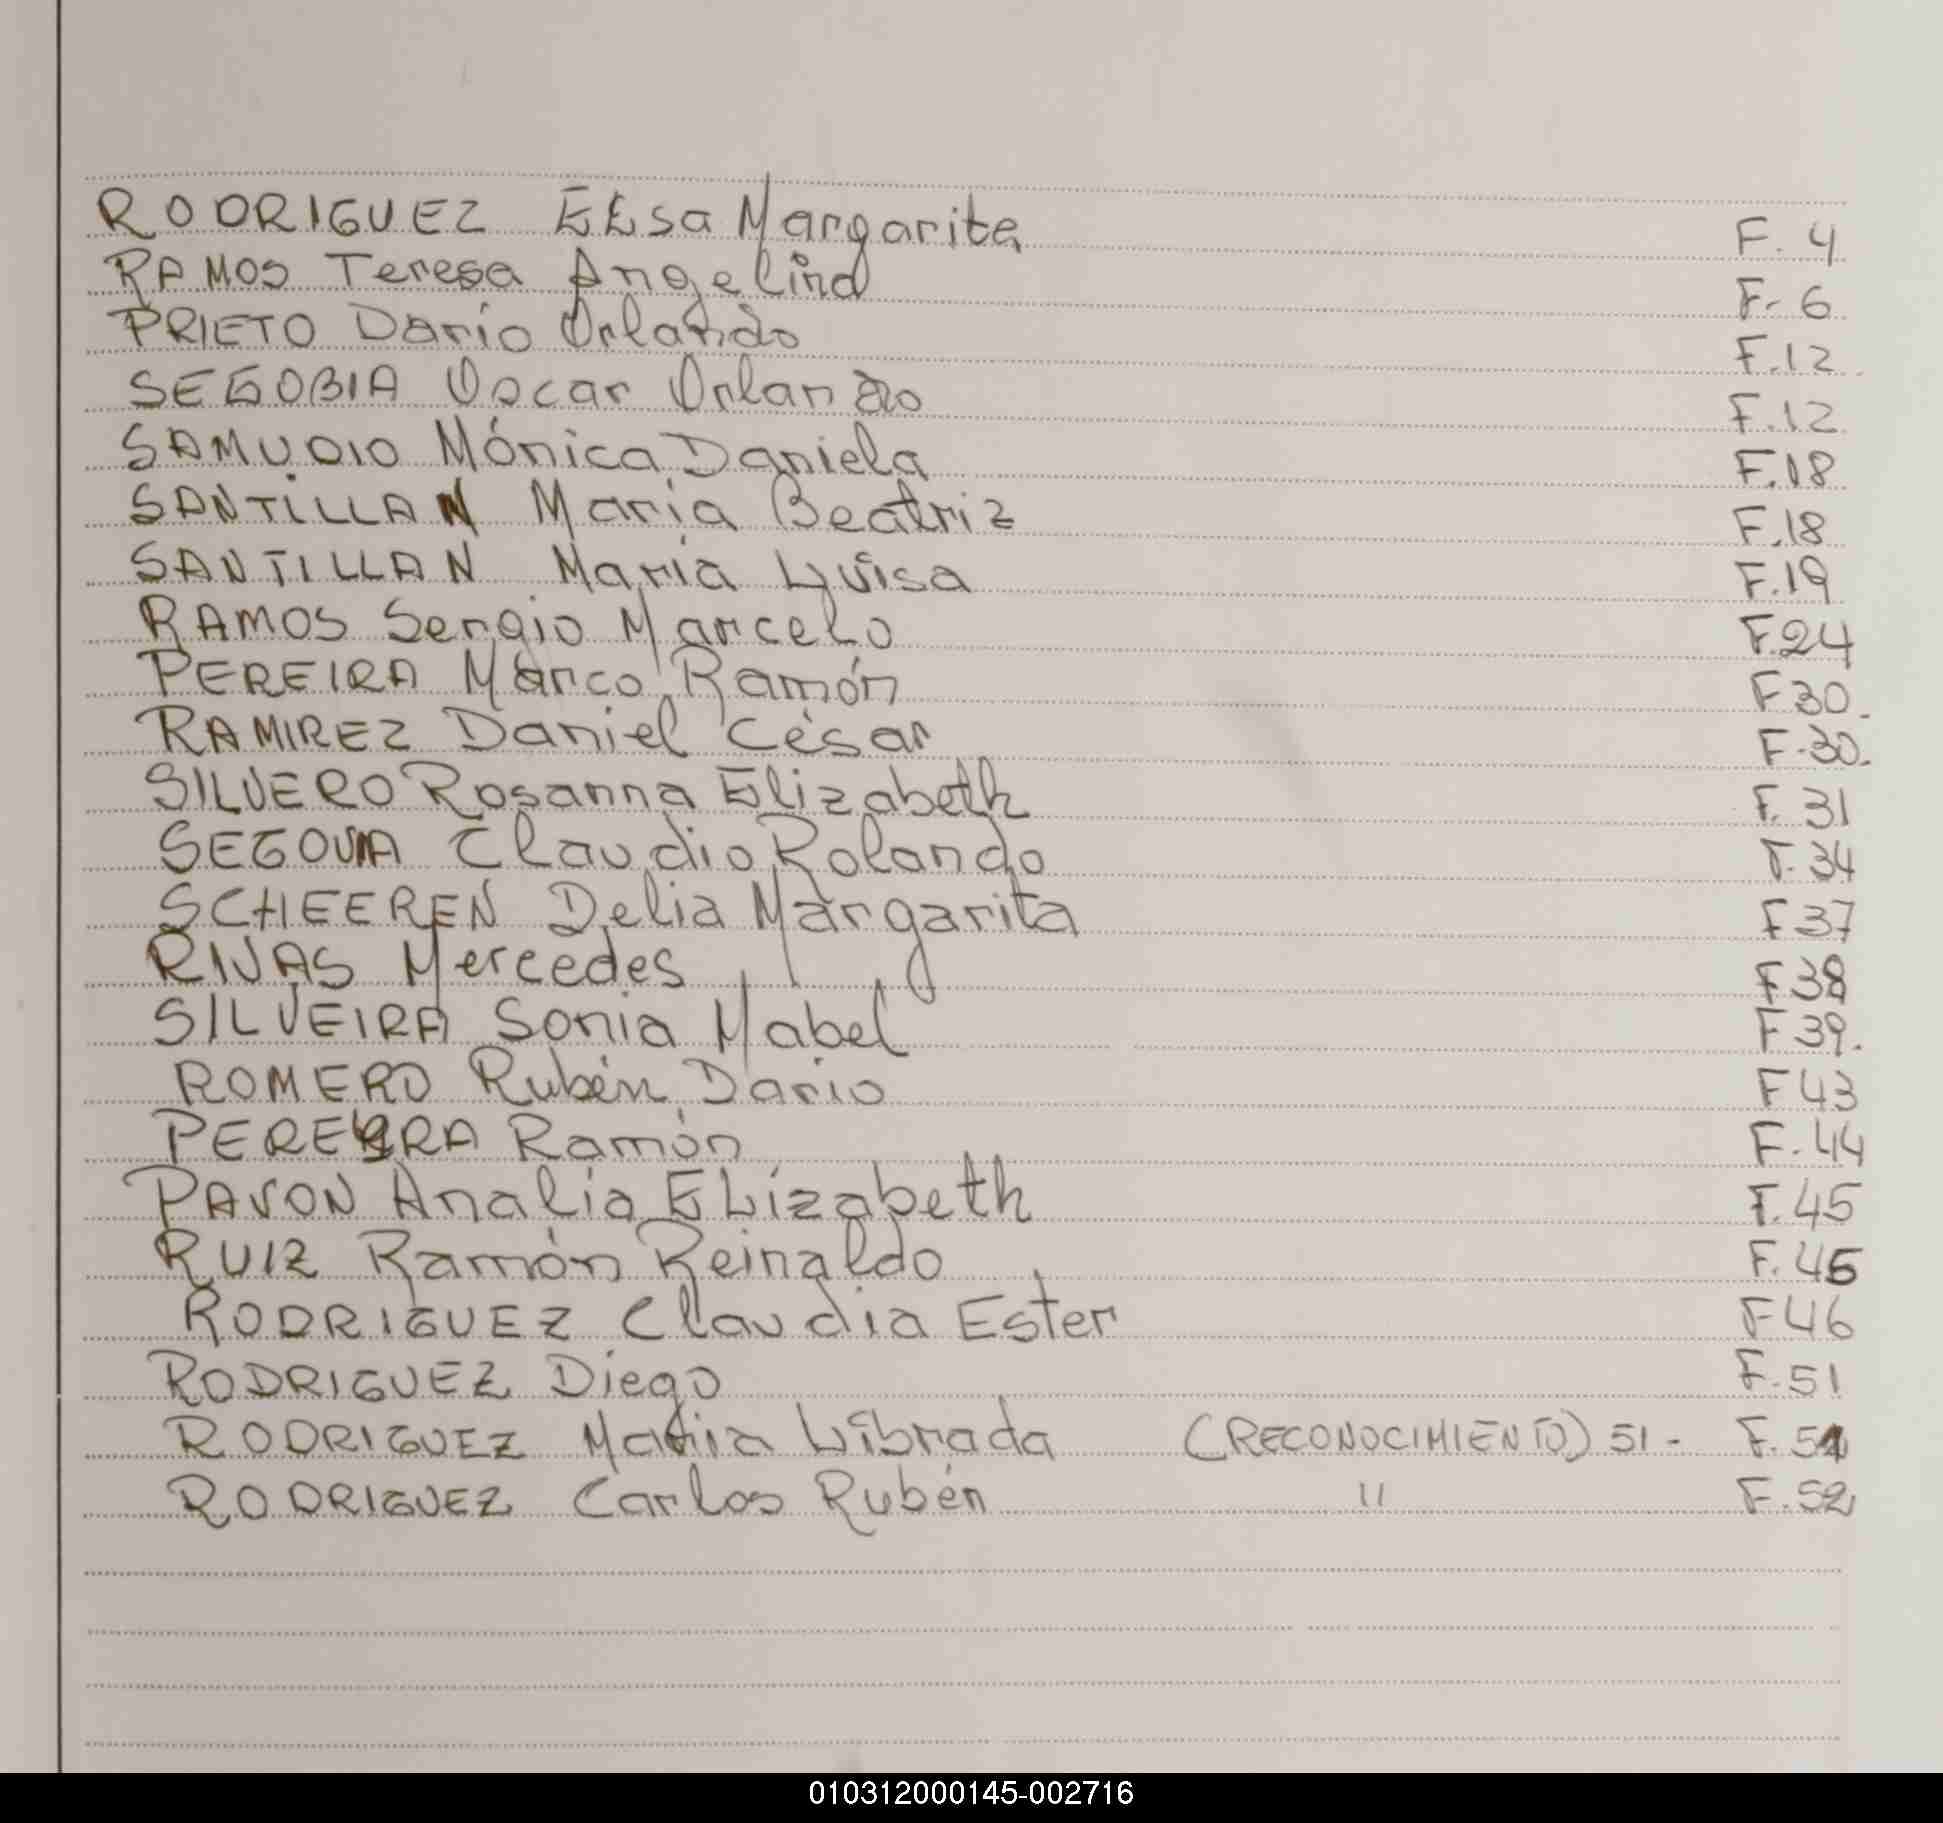 RODRIGUEZ Elsa Margarita F. 4
RAMOS Teresa Angelina F. 6
PRIETO Darío Orlando F.12
SEGOBIA Oscar Orlando F.12
SAMUDIO Mónica Daniela F.18
SANTILLAN María Beatriz F.18
SANTILLAN María Luisa F.19
RAMOS Sergio Marcelo F.24
PEREIRA Marco Ramón F30.
RAMIREZ Daniel César F.30.
SILVERO Rosanna Elizabeth F. 31
SEGOVIA Claudio Rolando F. 34
SCHEEREN Delia Margarita F37
RIVAS Mercedes F38
SILVEIRA Sonia Mabel F39.
ROMERO Rubén Dario F43
PEREYRA Ramón F.44
PAVON Analia Elizabeth F.45
RUIZ Ramón Reinaldo F.45
RODRIGUEZ Claudia Ester F46
RODRIGUEZ Diego F.51
RODRIGUEZ María Librada (RECONOCIMIENTO) 51- F.51
RODRIGUEZ Carlos Rubén " F.52
010312000145-002716